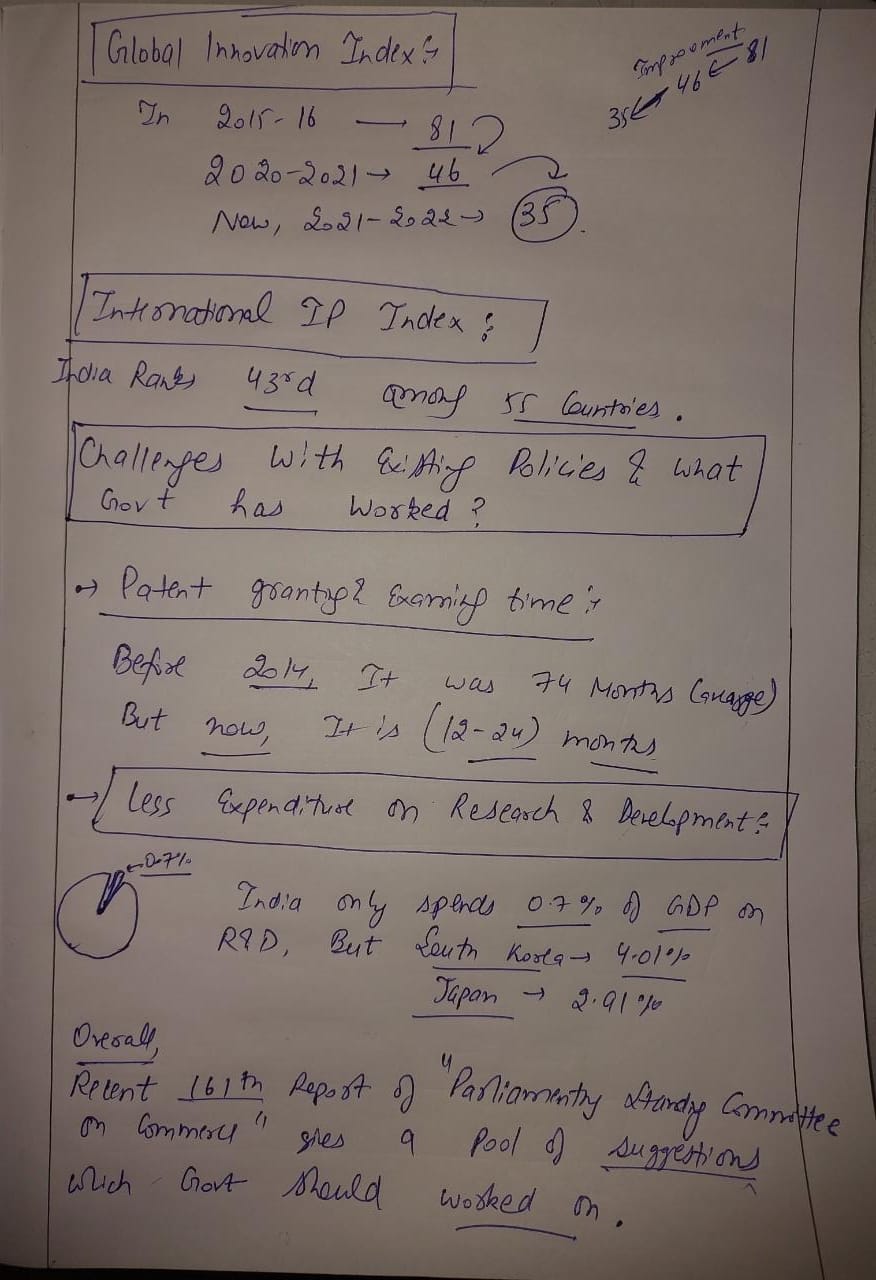 Global Innovation Index :-
Improoment
35 ← 46 ← 81
In 2015-16 — 81
2020-2021 → 46
Now, 2021-2022 → 35.
International IP Index :
India Ranks 43rd among 55 Countries.
Challenges With Existing Policies & what
Govt has Worked ?
→ Patent granting & Examing time :-
Before 2014, It was 74 Months (avarge)
But now, It is (12-24) months
→ Less Expenditure on Research & Development :-
←0.7%
India only spends 0.7% of GDP on
R&D, But South Korea → 4.01%
Japan → 2.91%
Overall,
Recent 161th Report of "Parliamentry Standing Committee
on Commerce" gives a Pool of suggestions
which Govt should worked on.